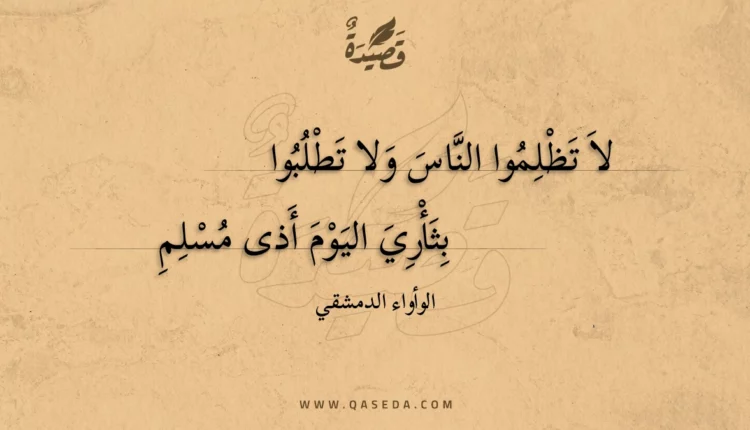 قَصِيْدَةٌ
لاَ تَظْلِمُوا النَّاسَ وَلا تَطْلُبُوا
بِثَأْرِيَ اليَوْمَ أَذى مُسْلِمِ
الوأواء الدمشقي
WWW.QASEDA.COM